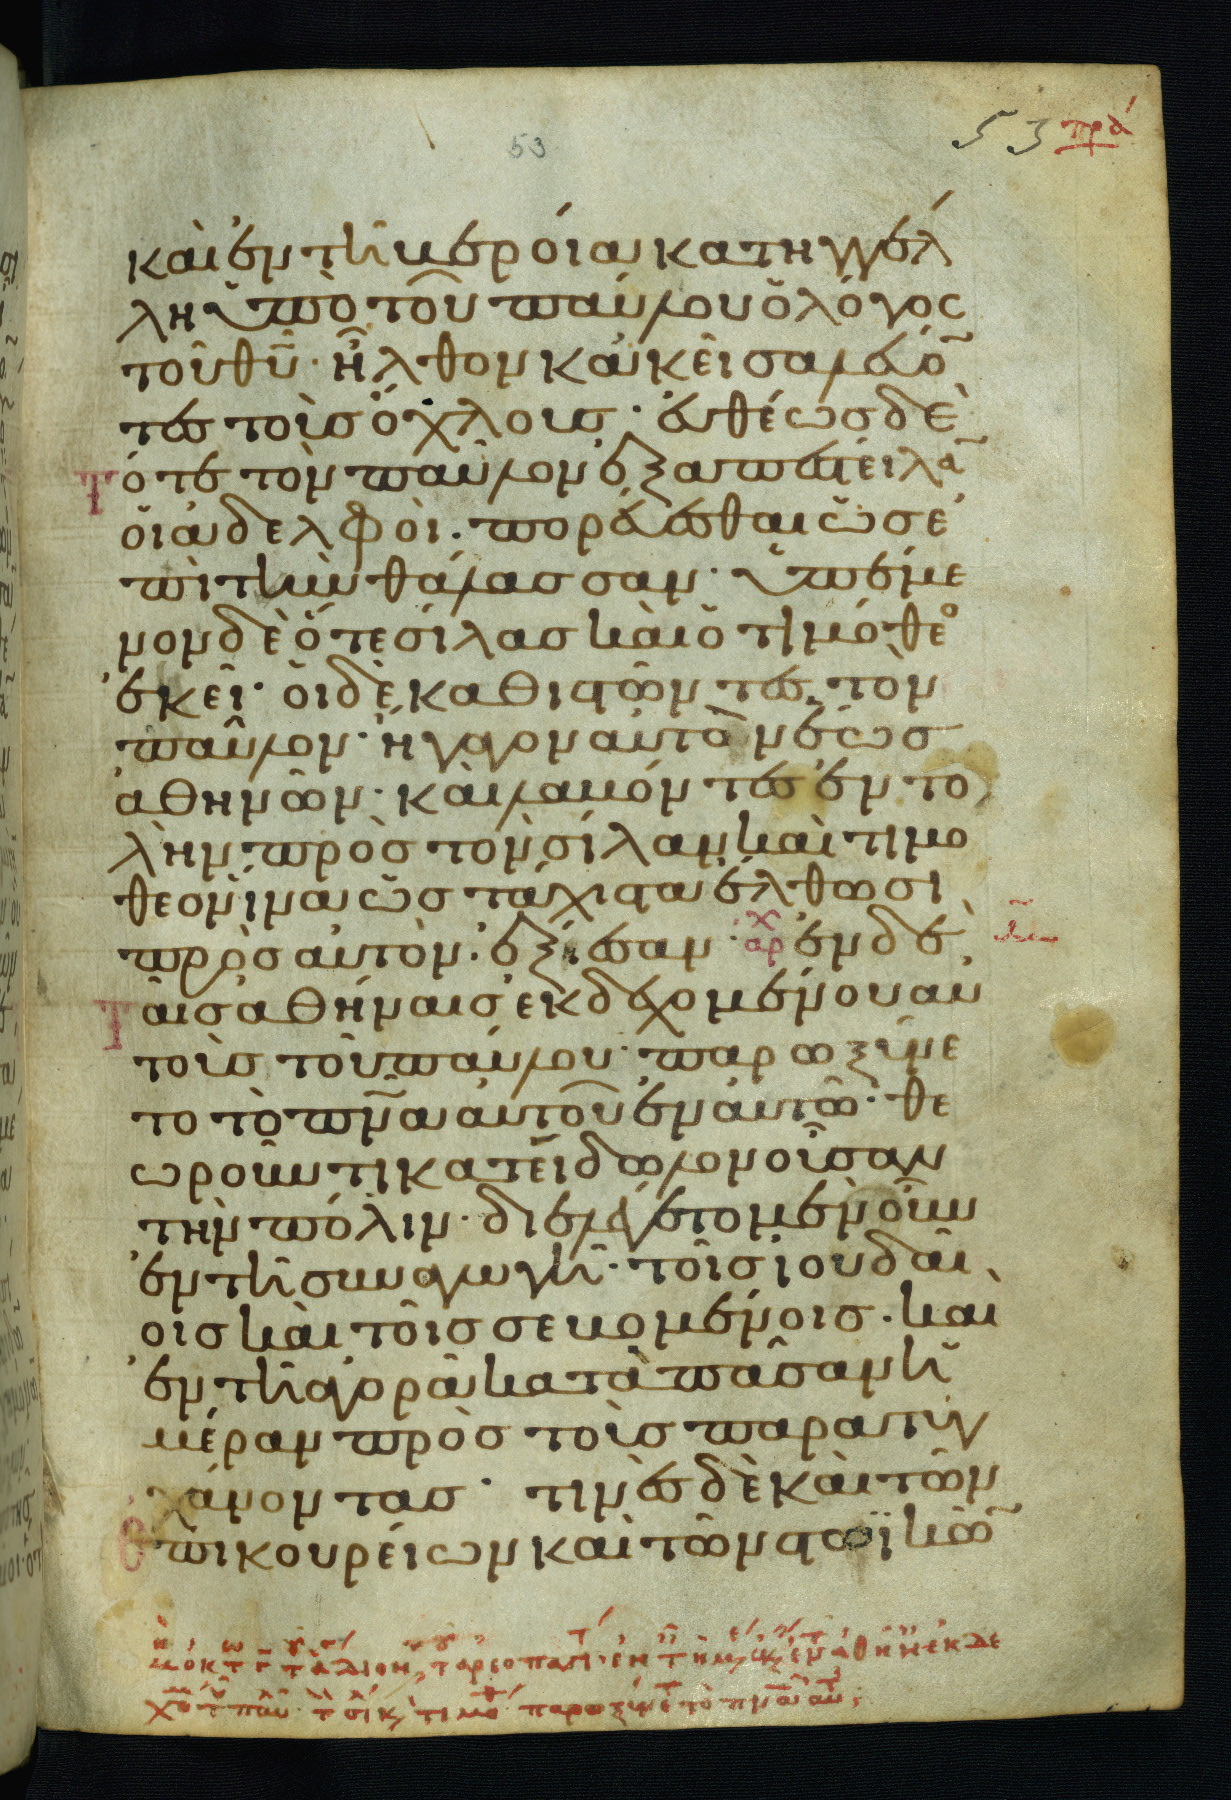 53 πρά
53
καὶ ἐν τῆ βεροία κατηγγέλ
λη ὑπὸ τοῦ παύλου ὁ λόγος
τοῦ θῦ· ἦλθον κἀκεῖ σαλεύο̄
τες τοὺς ὄχλους· εὐθέως δὲ
τότε τὸν παῦλον ἐξαπέστειλᾱ
οἱ ἀδελφοὶ· πορεύεσθαι ὡς ἐ
πὶ τὴν θάλασσαν· ὑπέμε
νον δὲ ὅ τε σίλας καὶ ὁ τιμόθεο
ἐκεῖ· οἱ δὲ καθιστῶντες τὸν
παῦλον· ἤγαγον αὐτὸν ἕως
ἀθηνῶν· καὶ λαβόντες ἐντο
λὴν πρὸς τὸν σίλαν καὶ τιμο
θεον ἵνα ὡς τάχιστα ἔλθωσι
πρὸς αὐτὸν· ἐξίεσαν· ἀρχ ἐν δὲ
ταῖς ἀθήναις ἐκδεχομένου αὐ
τοὺς τοῦ παύλου· παρωξύνε
το τὸ πνᾶ αὐτοῦ ἐν αὐτῶ· θε
ωροῦντι κατείδωλον οὖσαν
τὴν πόλιν· διελέγετο μὲν οὖν
ἐν τῆ συναγωγῆ· τοῖς ἰουδαί
οις καὶ τοῖς σεβομένοις· καὶ
ἐν τῆ ἀγορᾶ κατὰ πᾶσαν ἡ
μέραν πρὸς τοὺς παρατυγ
χάνοντας· τινὲς δὲ καὶ τῶν
ἐπικουρείων καὶ τῶν στωϊκῶ̄
παρωξύνετο τὸ πνᾶ αὐτ